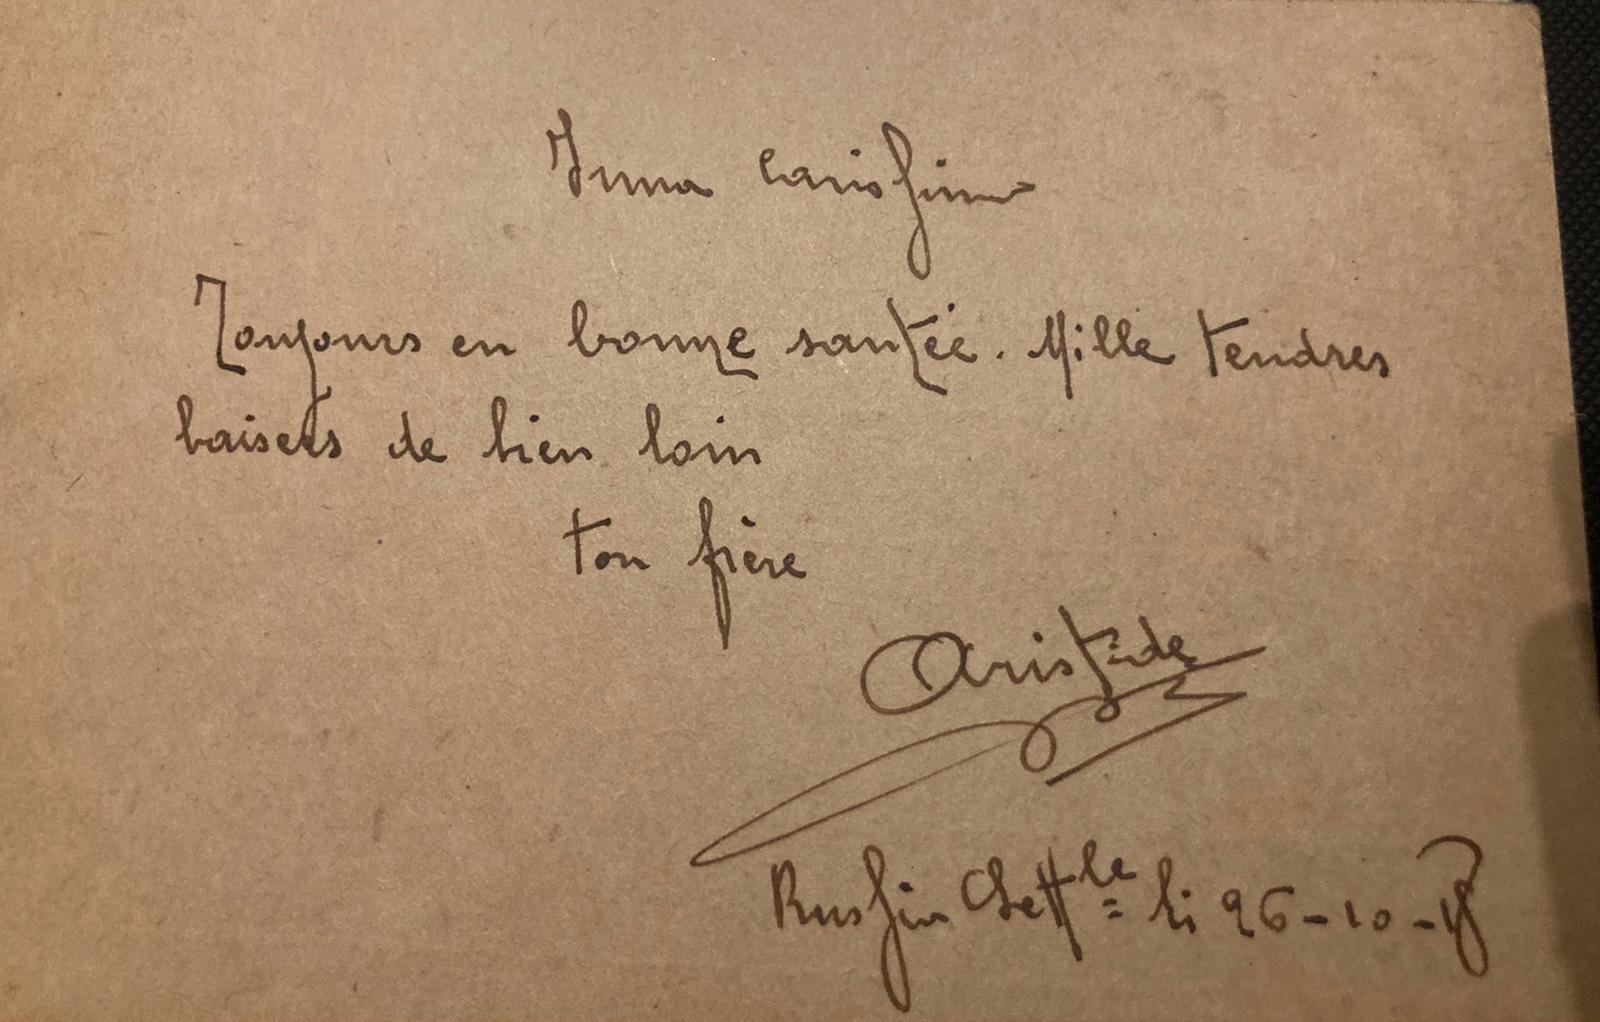 Irma carissima
Toujours en bonne santée. Mille tendres
baisers de bien loin
ton frère
Aristide
li 26-10-18